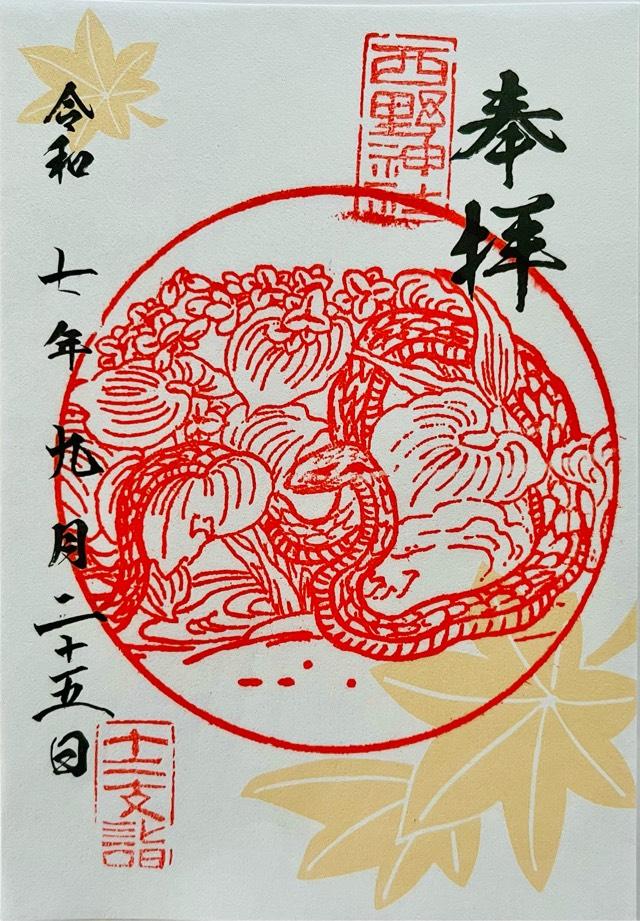 奉拝
西野神社
令和 七年 九月 二十五日
十二支詣